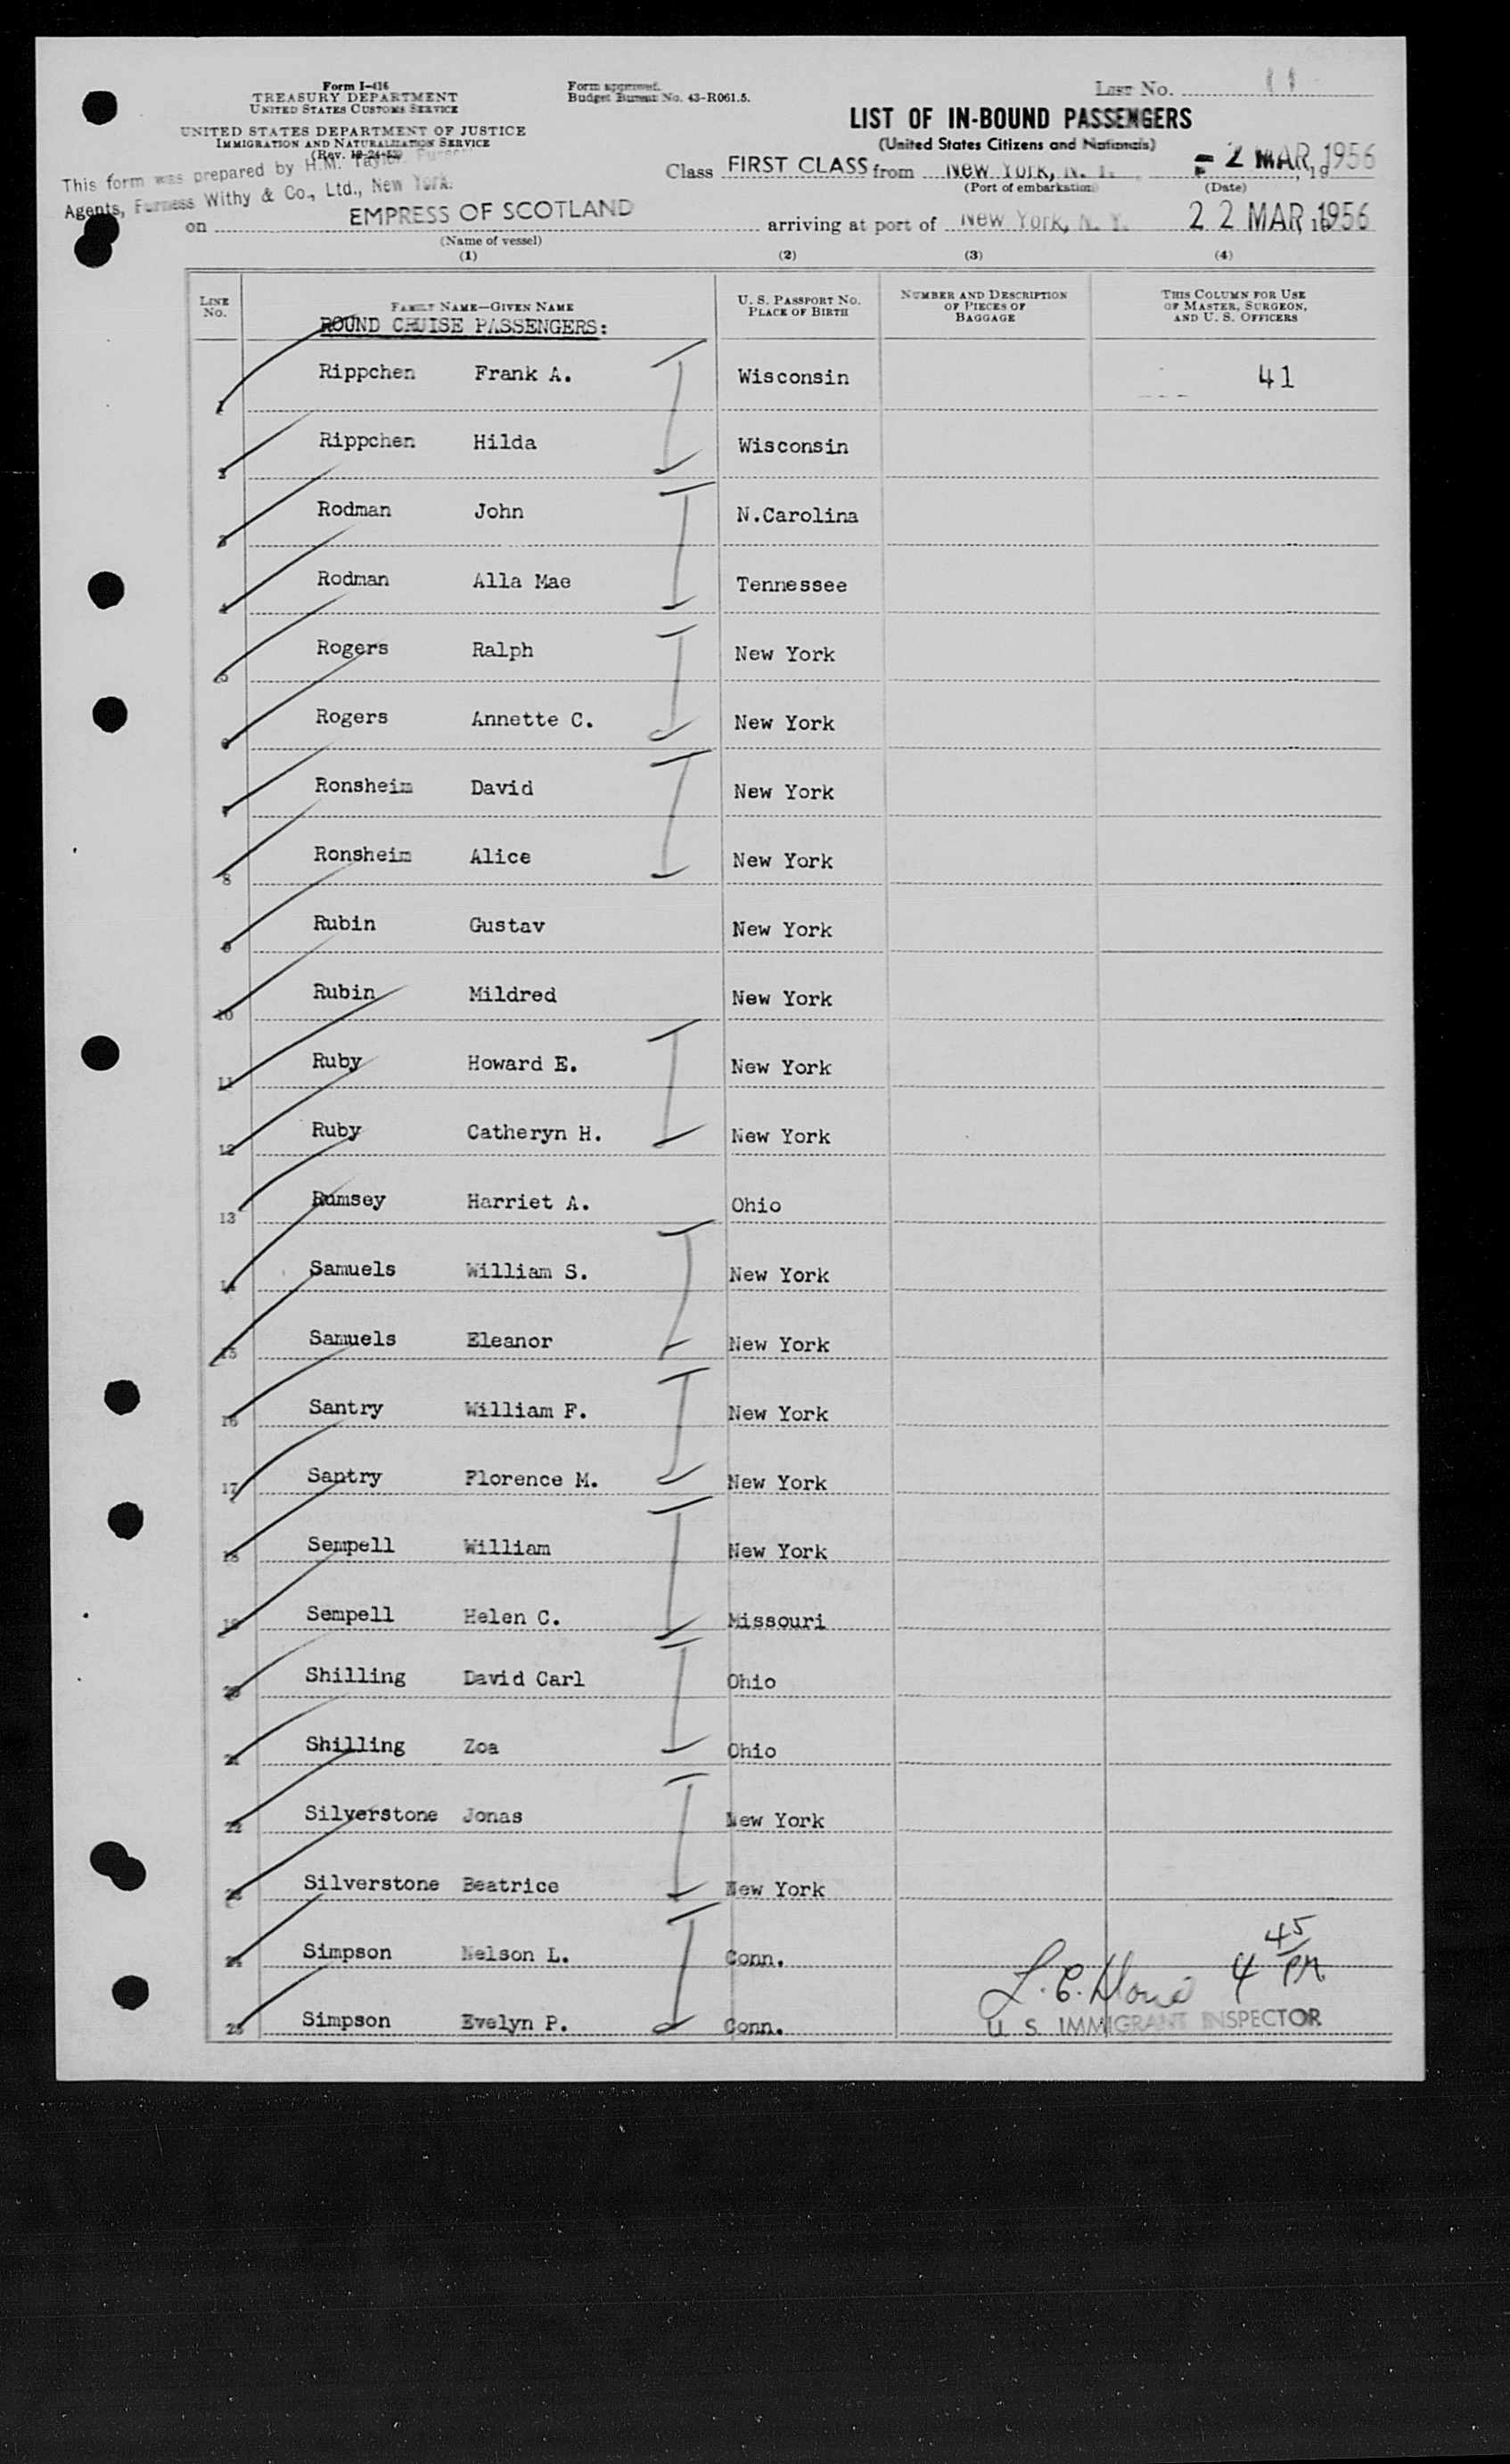 Form I-416
TREASURY DEPARTMENT
UNITED STATES CUSTOMS SERVICE
UNITED STATES DEPARTMENT OF JUSTICE
IMMIGRATION AND NATURALIZATION SERVICE
(Rev.
This form was prepared by H.M. Taylor, Purser
Agents, Furness Withy & Co., Ltd., New York.
Form approved.
Budget Bureau No. 43-R061.5.
List No. 11
LIST OF IN-BOUND PASSENGERS
(United States Citizens and Nationals)
Class FIRST CLASS from New York, N. Y. - 2 MAR 1956, 19
(Port of embarkation) (Date)
on EMPRESS OF SCOTLAND arriving at port of New York, N. Y. 22 MAR 1956
(Name of vessel)
(1) (2) (3) (4)
LINE No. FAMILY NAME—GIVEN NAME U. S. PASSPORT NO. PLACE OF BIRTH NUMBER AND DESCRIPTION OF PIECES OF BAGGAGE THIS COLUMN FOR USE OF MASTER, SURGEON, AND U. S. OFFICERS
ROUND CRUISE PASSENGERS:
1 Rippchen Frank A. Wisconsin 41
2 Rippchen Hilda Wisconsin
3 Rodman John N.Carolina
4 Rodman Alla Mae Tennessee
5 Rogers Ralph New York
6 Rogers Annette C. New York
7 Ronsheim David New York
8 Ronsheim Alice New York
9 Rubin Gustav New York
10 Rubin Mildred New York
11 Ruby Howard E. New York
12 Ruby Catheryn H. New York
13 Rumsey Harriet A. Ohio
14 Samuels William S. New York
15 Samuels Eleanor New York
16 Santry William F. New York
17 Santry Florence M. New York
18 Sempell William New York
19 Sempell Helen C. Missouri
20 Shilling David Carl Ohio
21 Shilling Zoa Ohio
22 Silverstone Jonas New York
23 Silverstone Beatrice New York
24 Simpson Nelson L. Conn.
25 Simpson Evelyn P. Conn.
L. C. 4 45 PM
U S IMMIGRANT INSPECTOR